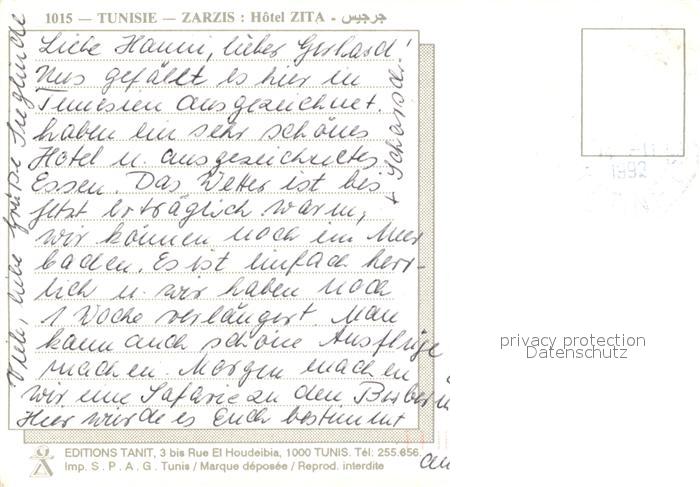 1015 — TUNISIE — ZARZIS : Hôtel ZITA - جرجيس
Liebe Hanni, lieber Gerhard!
Uns gefällt es hier in
Tunesien ausgezeichnet.
haben ein sehr schönes
Hotel u. ausgezeichnetes
Essen. Das Wetter ist bes
jetzt erträglich warm,
wir können noch im Meer
baden. Es ist einfach herr-
lich u. wir haben noch
1 Woche verlängert. Man
kann auch schöne Ausflüge
machen. Morgen machen
wir eine Safarie zu den Berbern
Hier würde es Euch bestimmt
Viele, liebe Grüße Sieglinde
+ Schorsch
1992
privacy protection
Datenschutz
EDITIONS TANIT, 3 bis Rue El Houdeibia, 1000 TUNIS. Tél: 255.656.
Imp. S . P . A . G . Tunis / Marque déposée / Reprod. interdite